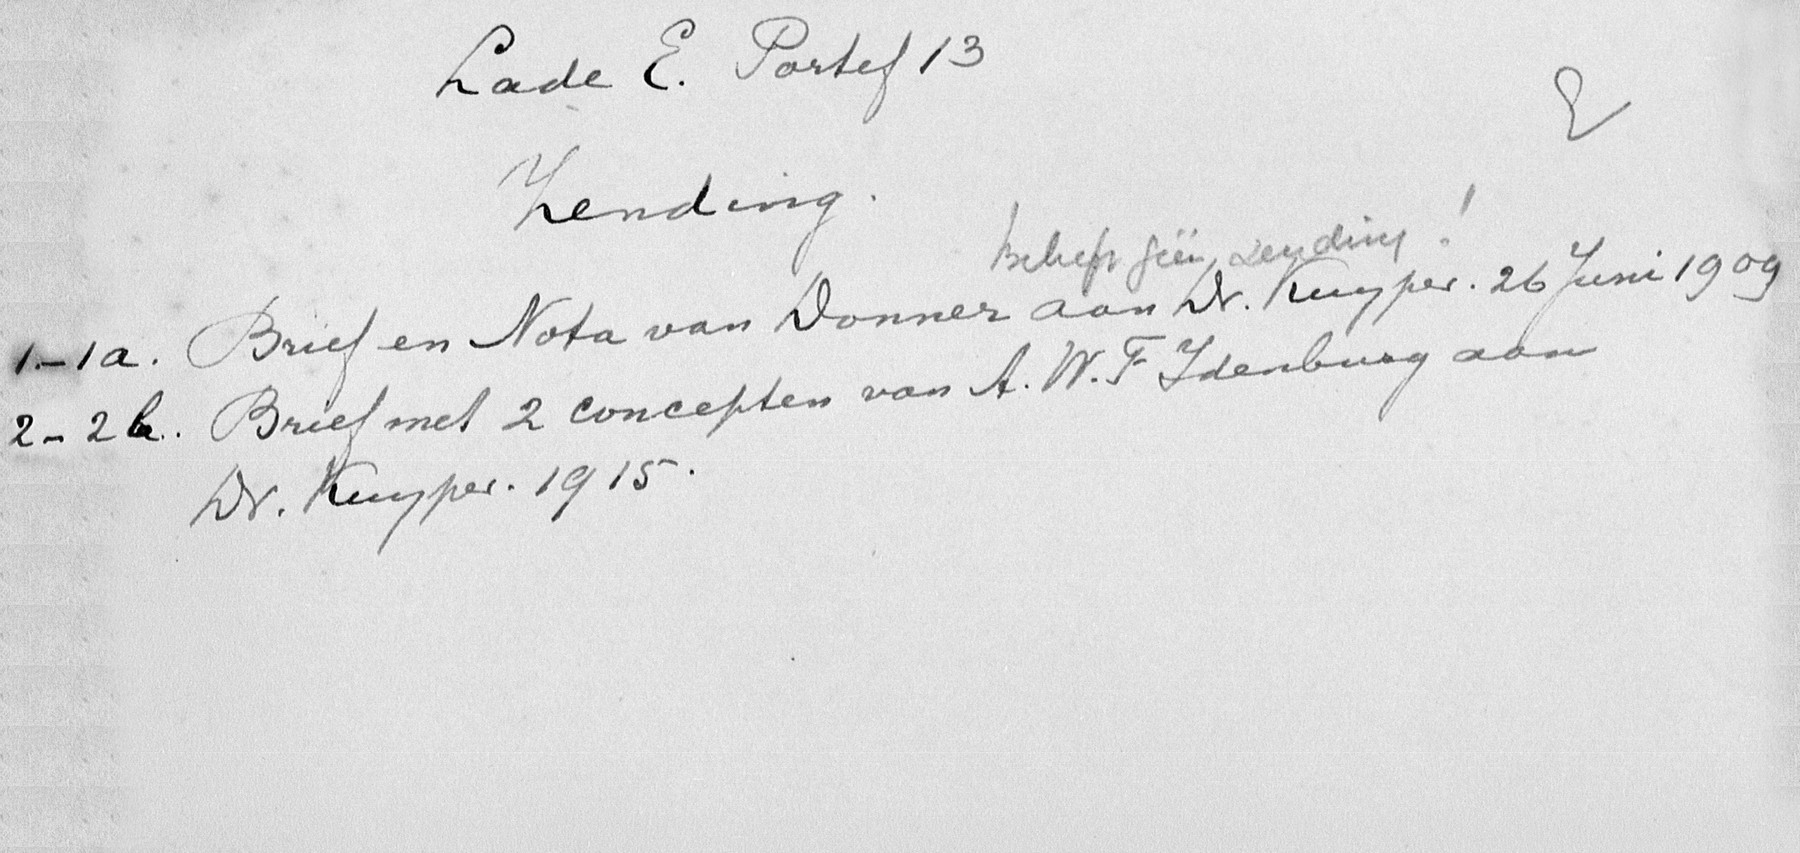 Lade E. Portef 13
E
Zending.
betreft geen zending!
1-1a. Brief en Nota van Donner aan Dr. Kuyper. 26 Juni 1909
2-2b. Brief met 2 concepten van A.W.F Idenburg aan
Dr. Kuyper. 1915.